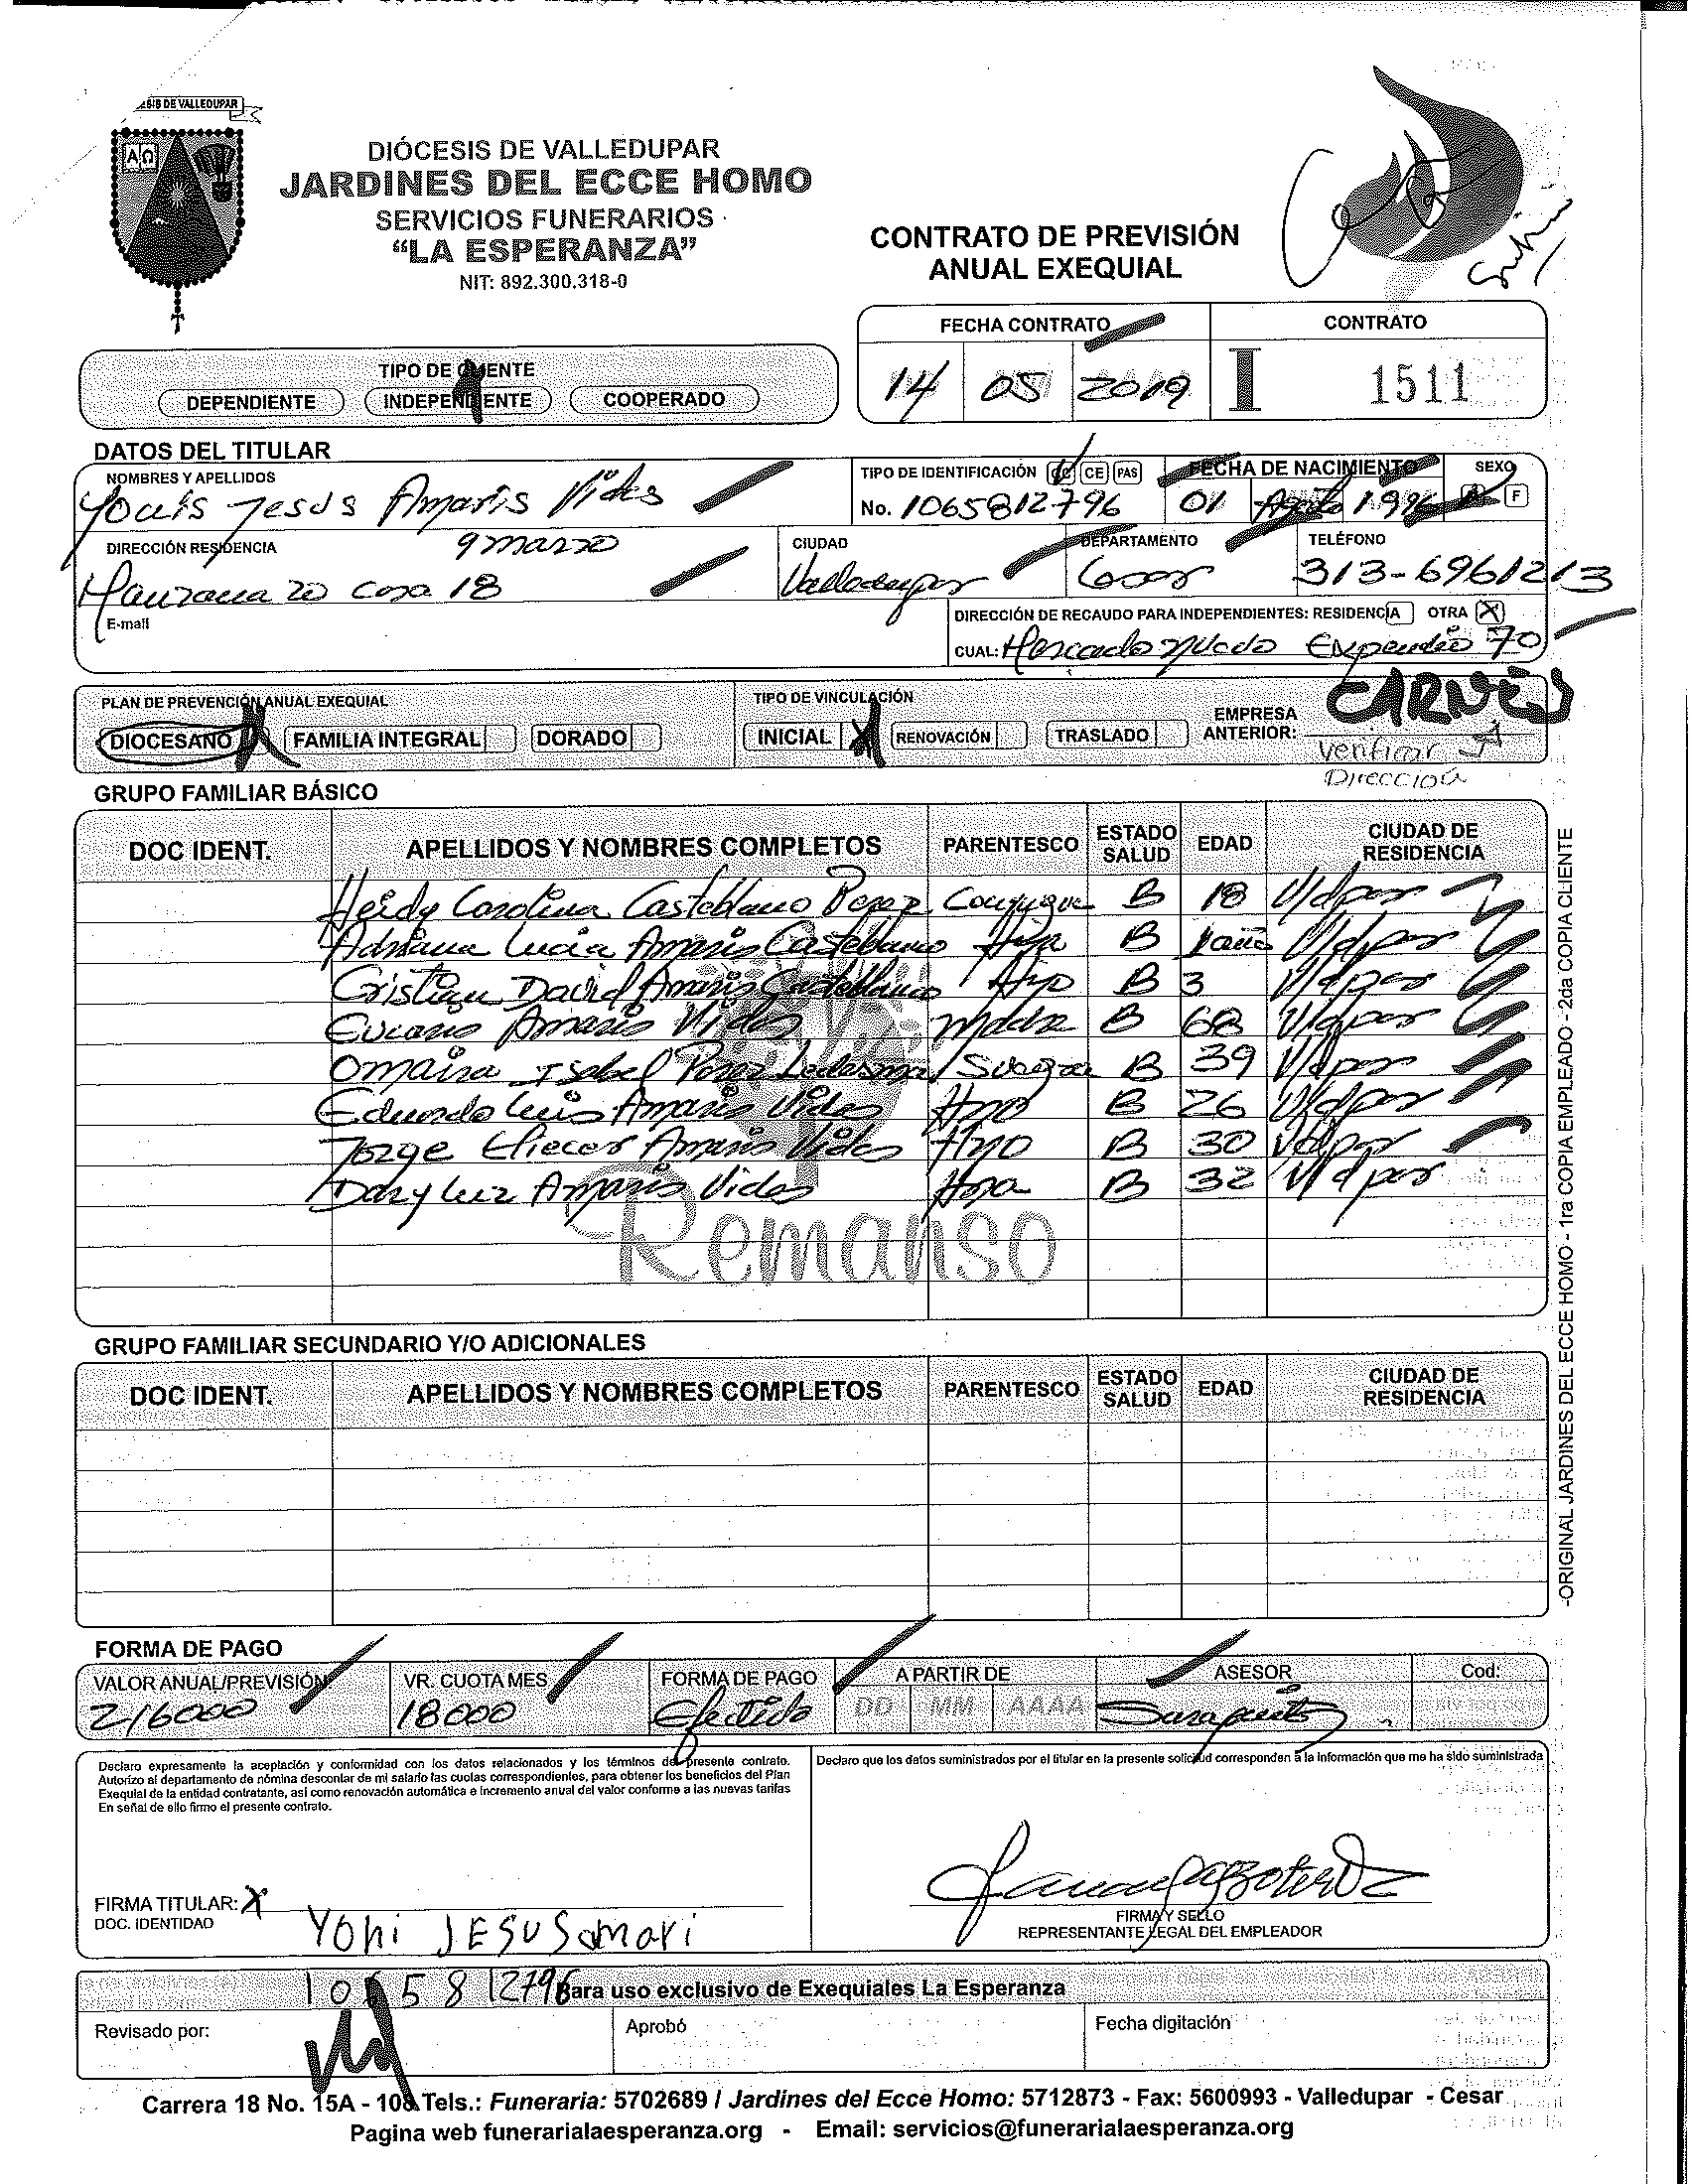 DIÓCESIS DE VALLEDUPAR
JARDINES DEL ECCE HOMO
SERVICIOS FUNERARIOS
“LA ESPERANZA”
NIT: 892.300.318-0
CONTRATO DE PREVISIÓN
ANUAL EXEQUIAL
FECHA CONTRATO CONTRATO
14 05 2019 I 1511
TIPO DE CLIENTE
DEPENDIENTE INDEPENDIENTE COOPERADO
DATOS DEL TITULAR
NOMBRES Y APELLIDOS TIPO DE IDENTIFICACIÓN CC CE PAS FECHA DE NACIMIENTO SEXO
Jesus Amaris Vides No. 1065812796 01 Agosto 1996 F
DIRECCIÓN RESIDENCIA 9 marzo CIUDAD DEPARTAMENTO TELÉFONO
Manzana 20 casa 18 Valledupar Cesar 313-6961213
E-mail
DIRECCIÓN DE RECAUDO PARA INDEPENDIENTES: RESIDENCIA OTRA X
CUAL: Mercado nuevo Expendio 70
PLAN DE PREVENCIÓN ANUAL EXEQUIAL TIPO DE VINCULACIÓN CARNES
DIOCESANO X FAMILIA INTEGRAL DORADO INICIAL X RENOVACIÓN TRASLADO EMPRESA ANTERIOR:
Verificar
Dirección
GRUPO FAMILIAR BÁSICO
DOC IDENT. APELLIDOS Y NOMBRES COMPLETOS PARENTESCO ESTADO SALUD EDAD CIUDAD DE RESIDENCIA
Heidy Carolina Casteblanco Perez Conyugue B 18 V/dpar
Adriana Lucia Amaris Casteblanco Hija B 1 año V/dpar
Cristian David Amaris Casteblanco Hijo B 3 V/dpar
Amaris Vides Madre B 68 V/dpar
Omaira Isabel Perez Ledesma Suegra B 39 V/dpar
Eduardo Luis Amaris Vides Hno B 26 V/dpar
Jorge Eliecer Amaris Vides Hno B 30 V/dpar
Dary Luz Amaris Vides Hna B 32 V/dpar
Remanso
GRUPO FAMILIAR SECUNDARIO Y/O ADICIONALES
DOC IDENT. APELLIDOS Y NOMBRES COMPLETOS PARENTESCO ESTADO SALUD EDAD CIUDAD DE RESIDENCIA
-ORIGINAL JARDINES DEL ECCE HOMO - 1ra COPIA EMPLEADO -2da COPIA CLIENTE
FORMA DE PAGO
VALOR ANUAL/PREVISIÓN VR. CUOTA MES FORMA DE PAGO A PARTIR DE ASESOR Cod:
216000 18000 Efectivo DD MM AAAA
Declaro expresamente la aceptación y conformidad con los datos relacionados y los términos del presente contrato.
Autorizo al departamento de nómina descontar de mi salario las cuotas correspondientes, para obtener los beneficios del Plan
Exequial de la entidad contratante, así como renovación automática e incremento anual del valor conforme a las nuevas tarifas
En señal de ello firmo el presente contrato.
Declaro que los datos suministrados por el titular en la presente solicitud corresponden a la información que me ha sido suministrada
FIRMA TITULAR: X
DOC. IDENTIDAD
YOhi JESUS amari
FIRMA Y SELLO
REPRESENTANTE LEGAL DEL EMPLEADOR
1065812796
Para uso exclusivo de Exequiales La Esperanza
Revisado por: Aprobó Fecha digitación
Carrera 18 No. 15A - 108 Tels.: Funeraria: 5702689 / Jardínes del Ecce Homo: 5712873 - Fax: 5600993 - Valledupar - Cesar
Pagina web funerarialaesperanza.org - Email: servicios@funerarialaesperanza.org